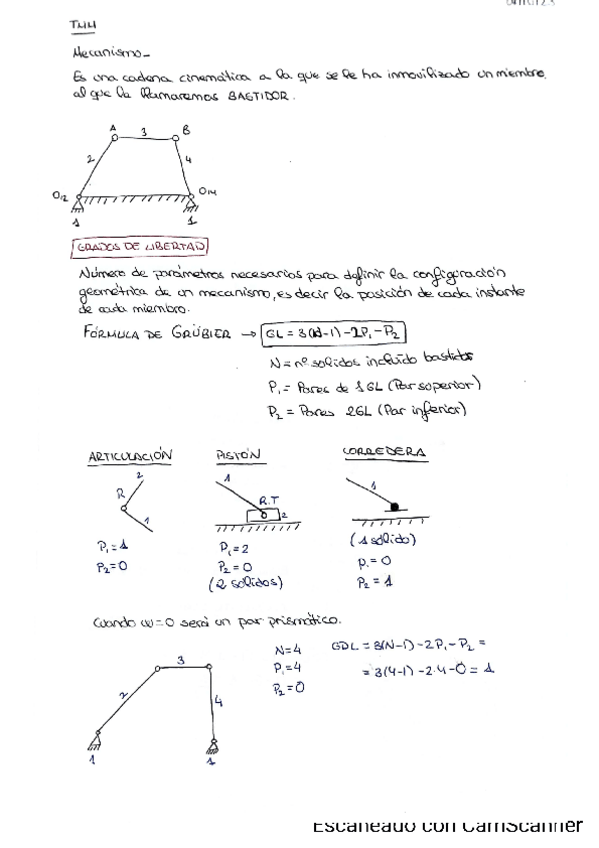 TMM
Mecanismo-
Es una cadena cinemática a la que se le ha inmovilizado un miembro,
al que la llamaremos BASTIDOR.
A 3 B
2 4
O12 O14
1 1
GRADOS DE LIBERTAD
Número de parámetros necesarios para definir la configuración
geométrica de un mecanismo, es decir la posición de cada instante
de cada miembro.
FÓRMULA DE GRÜBIER → GL = 3(N-1)-2P₁-P₂
N = nº solidos incluído bastidor
P₁ = Pares de 1GL (Par superior)
P₂ = Pares 2GL (Par inferior)
ARTICULACIÓN PISTÓN CORREDERA
2 1 1
R R.T
1 2
P₁=1 P₁=2 (1 sólido)
P₂=0 P₂=0 P₁=0
(2 solidos) P₂=1
Cuando ω=0 será un par prismático.
N=4 GDL = 3(N-1)-2P₁-P₂ =
P₁=4 = 3(4-1)-2·4-0 = 1
P₂=0
3
2 4
1 1
Escaneado con CamScanner